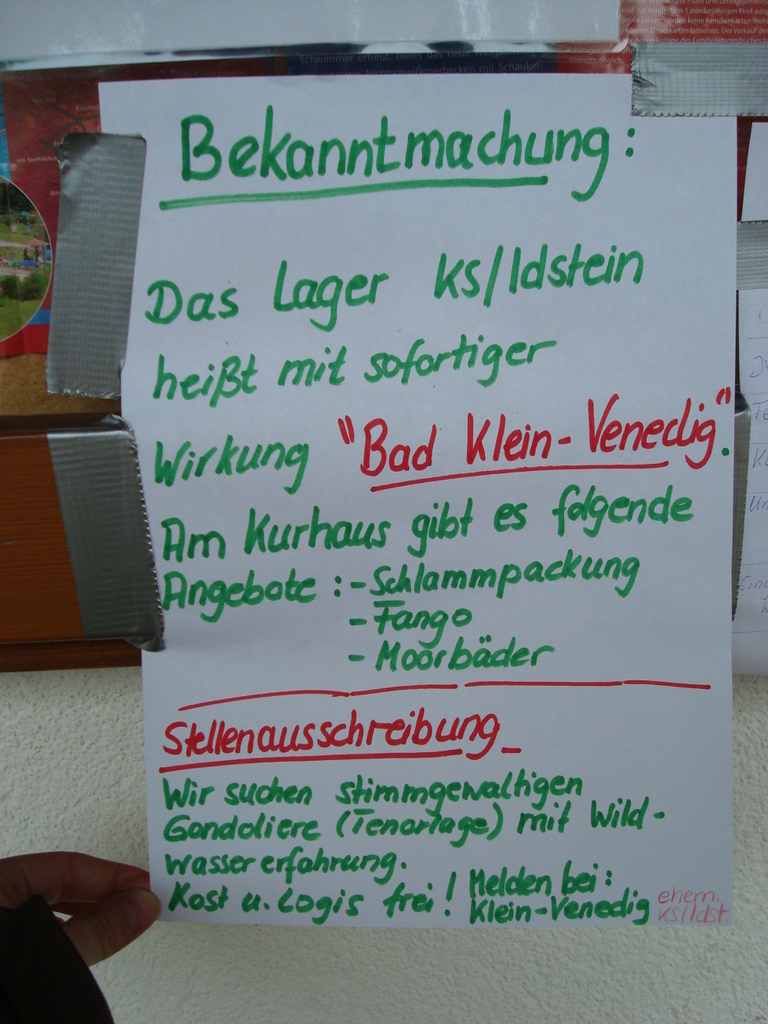 Schwimmer erfreut, bietet das neue
Bekanntmachung:
Das Lager KS/Idstein
heißt mit sofortiger
Wirkung "Bad Klein-Venedig".
Am Kurhaus gibt es folgende
Angebote: - Schlammpackung
- Fango
- Moorbäder
Stellenausschreibung
Wir suchen stimmgewaltigen
Gondoliere (Tenorlage) mit Wild-
wassererfahrung.
Kost u. Logis frei! Melden bei:
Klein-Venedig ehem. KS/Idst.